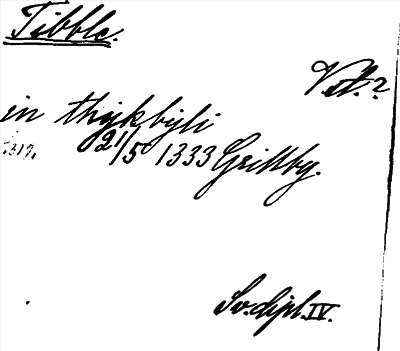 Tibble.
Vst.?
in thykbyli
21/5 1333 Grillby.
Sv. dipl. IV.